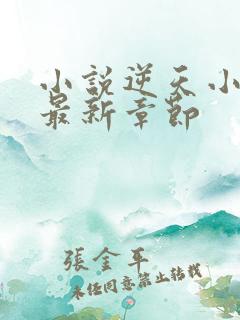 小說逆天小
最新章節
張金平
未經同意禁止轉載